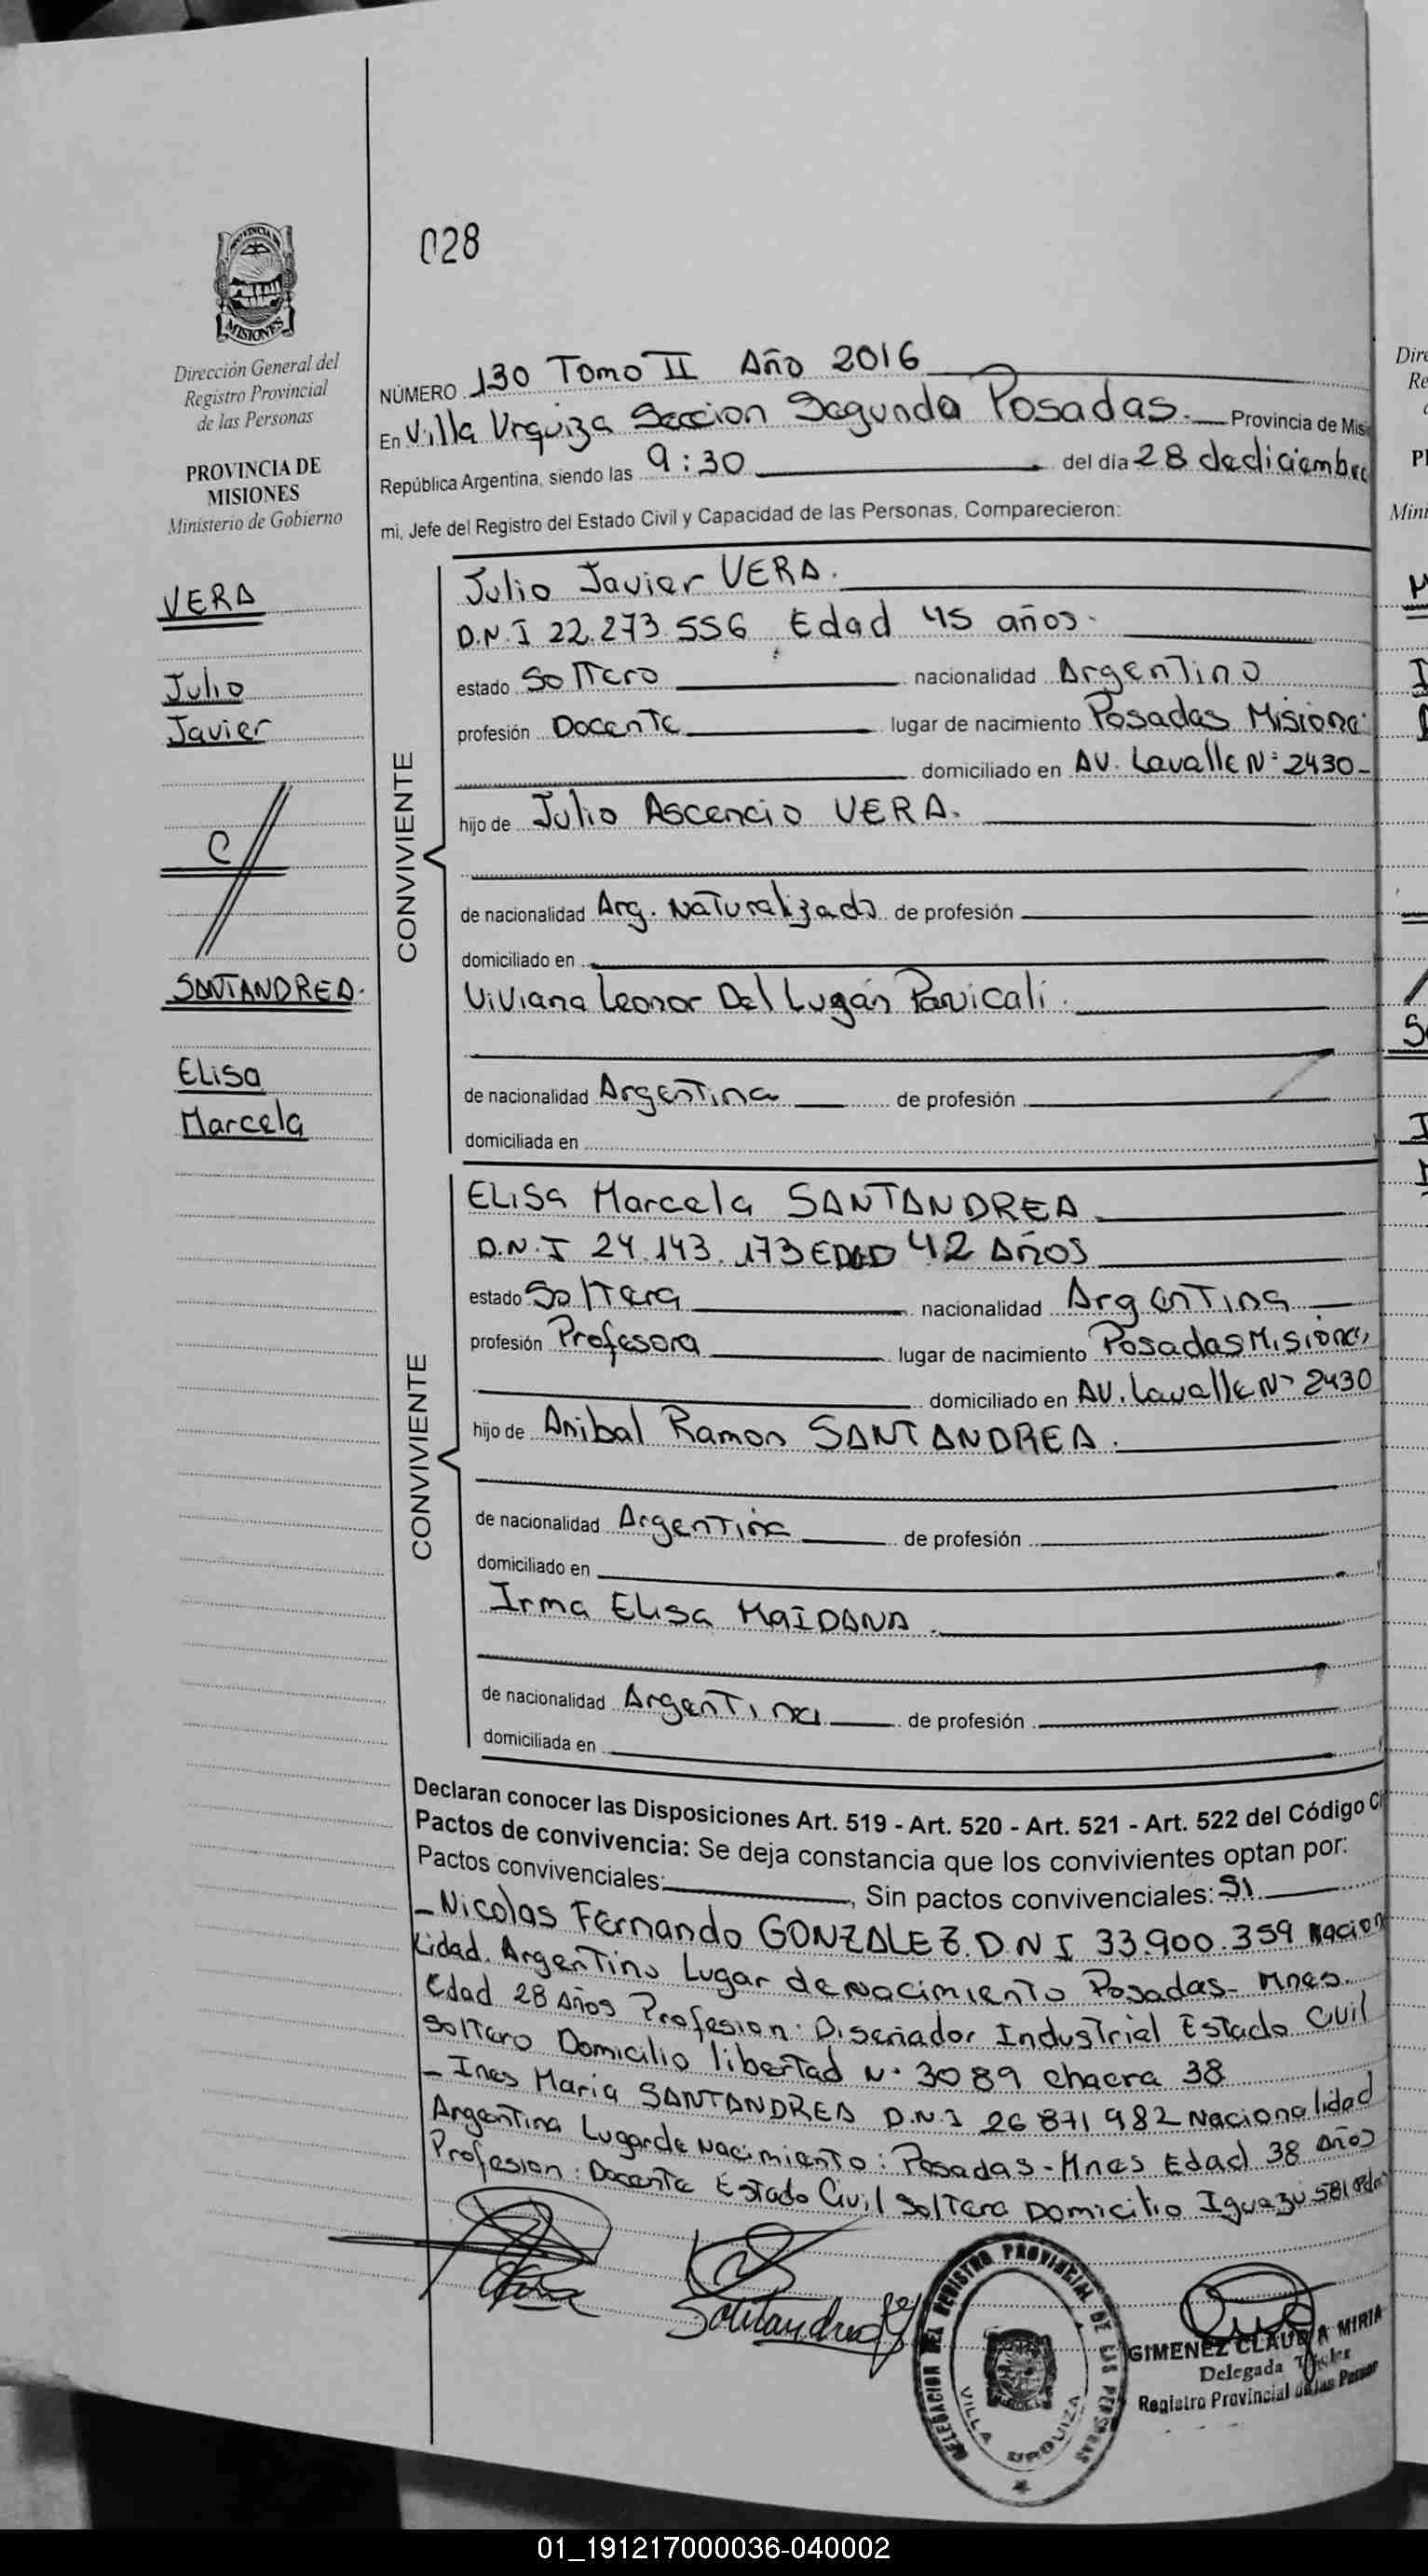 028
PROVINCIA DE
MISIONES
Dirección General del
Registro Provincial
de las Personas
PROVINCIA DE
MISIONES
Ministerio de Gobierno
VERA
Julio
Javier
C
SANTANDREA.
ELisa
Marcela
NÚMERO 130 Tomo II Año 2016
En Villa Urquiza Seccion Segunda Posadas. Provincia de Mis
República Argentina, siendo las 9:30 del día 28 de diciembre
mi, Jefe del Registro del Estado Civil y Capacidad de las Personas, Comparecieron:
CONVIVIENTE
Julio Javier VERA.
D.N.I 22.273.556 Edad 45 años.
estado Soltero nacionalidad Argentino
profesión Docente lugar de nacimiento Posadas Misione
domiciliado en AV. Lavalle Nº 2430
hijo de Julio Ascencio VERA.
de nacionalidad Arg. Naturalizado de profesión
domiciliado en
Viviana Leonor Del Lugán Parvicali.
de nacionalidad Argentina de profesión
domiciliada en
CONVIVIENTE
ELisa Marcela SANTANDREA
D.N.I 24.143.173 EDAD 42 Años
estado Soltera nacionalidad Argentina
profesión Profesora lugar de nacimiento Posadas Misiones
domiciliado en AV. Lavalle Nº 2430
hijo de Anibal Ramon SANTANDREA.
de nacionalidad Argentina de profesión
domiciliado en
Irma ELisa MAIDANA
de nacionalidad Argentina de profesión
domiciliada en
Declaran conocer las Disposiciones Art. 519 - Art. 520 - Art. 521 - Art. 522 del Código Ci
Pactos de convivencia: Se deja constancia que los convivientes optan por:
Pactos convivenciales: , Sin pactos convivenciales: SI
- Nicolas Fernando GONZALEZ. D N I 33.900.359 Nacion
Lidad. Argentino Lugar de Nacimiento Posadas - Mnes.
Edad 28 Años Profesion: Diseñador Industrial Estado Civil
Soltero Domicilio libertad Nº 3089 chacra 38
- Ines Maria SANTANDREA D.N.I 26 871 982 Nacionalidad
Argentina Lugar de Nacimiento: Posadas - Mnes Edad 38 Años
Profesion: Docente Estado Civil Soltera Domicilio Iguazu 581
Santandrea
DELEGACION DEL REGISTRO PROVINCIAL DE LAS PERSONAS
VILLA URQUIZA
GIMENEZ CLAUDIA MIRIA
Delegada Titular
Registro Provincial de las Person
01_191217000036-040002